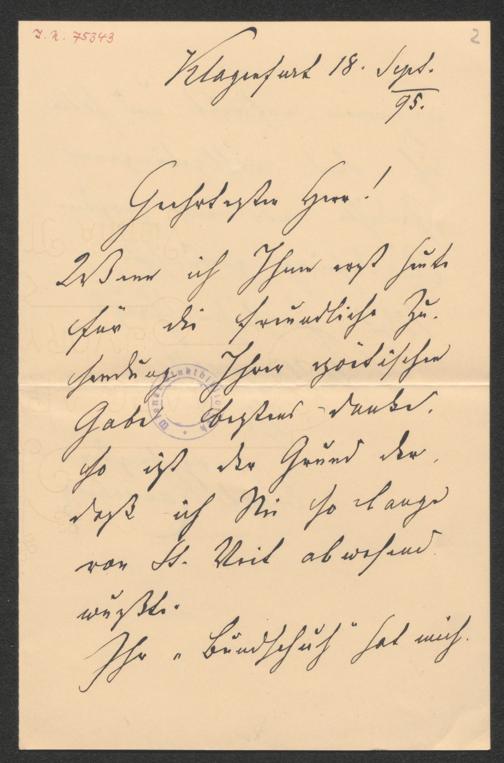 I. N. 75343
2
Klagenfurt 18. Sept.
95.
Geehrtester Herr!
Wenn ich Ihnen erst heute
für die freundliche Zu-
sendung Ihrer poëtischen
Gabe bestens danke,
so ist der Grund der,
daß ich Sie so lange
von St. Veit abwesend
wußte.
Ihr „Bundschuh" hat mich